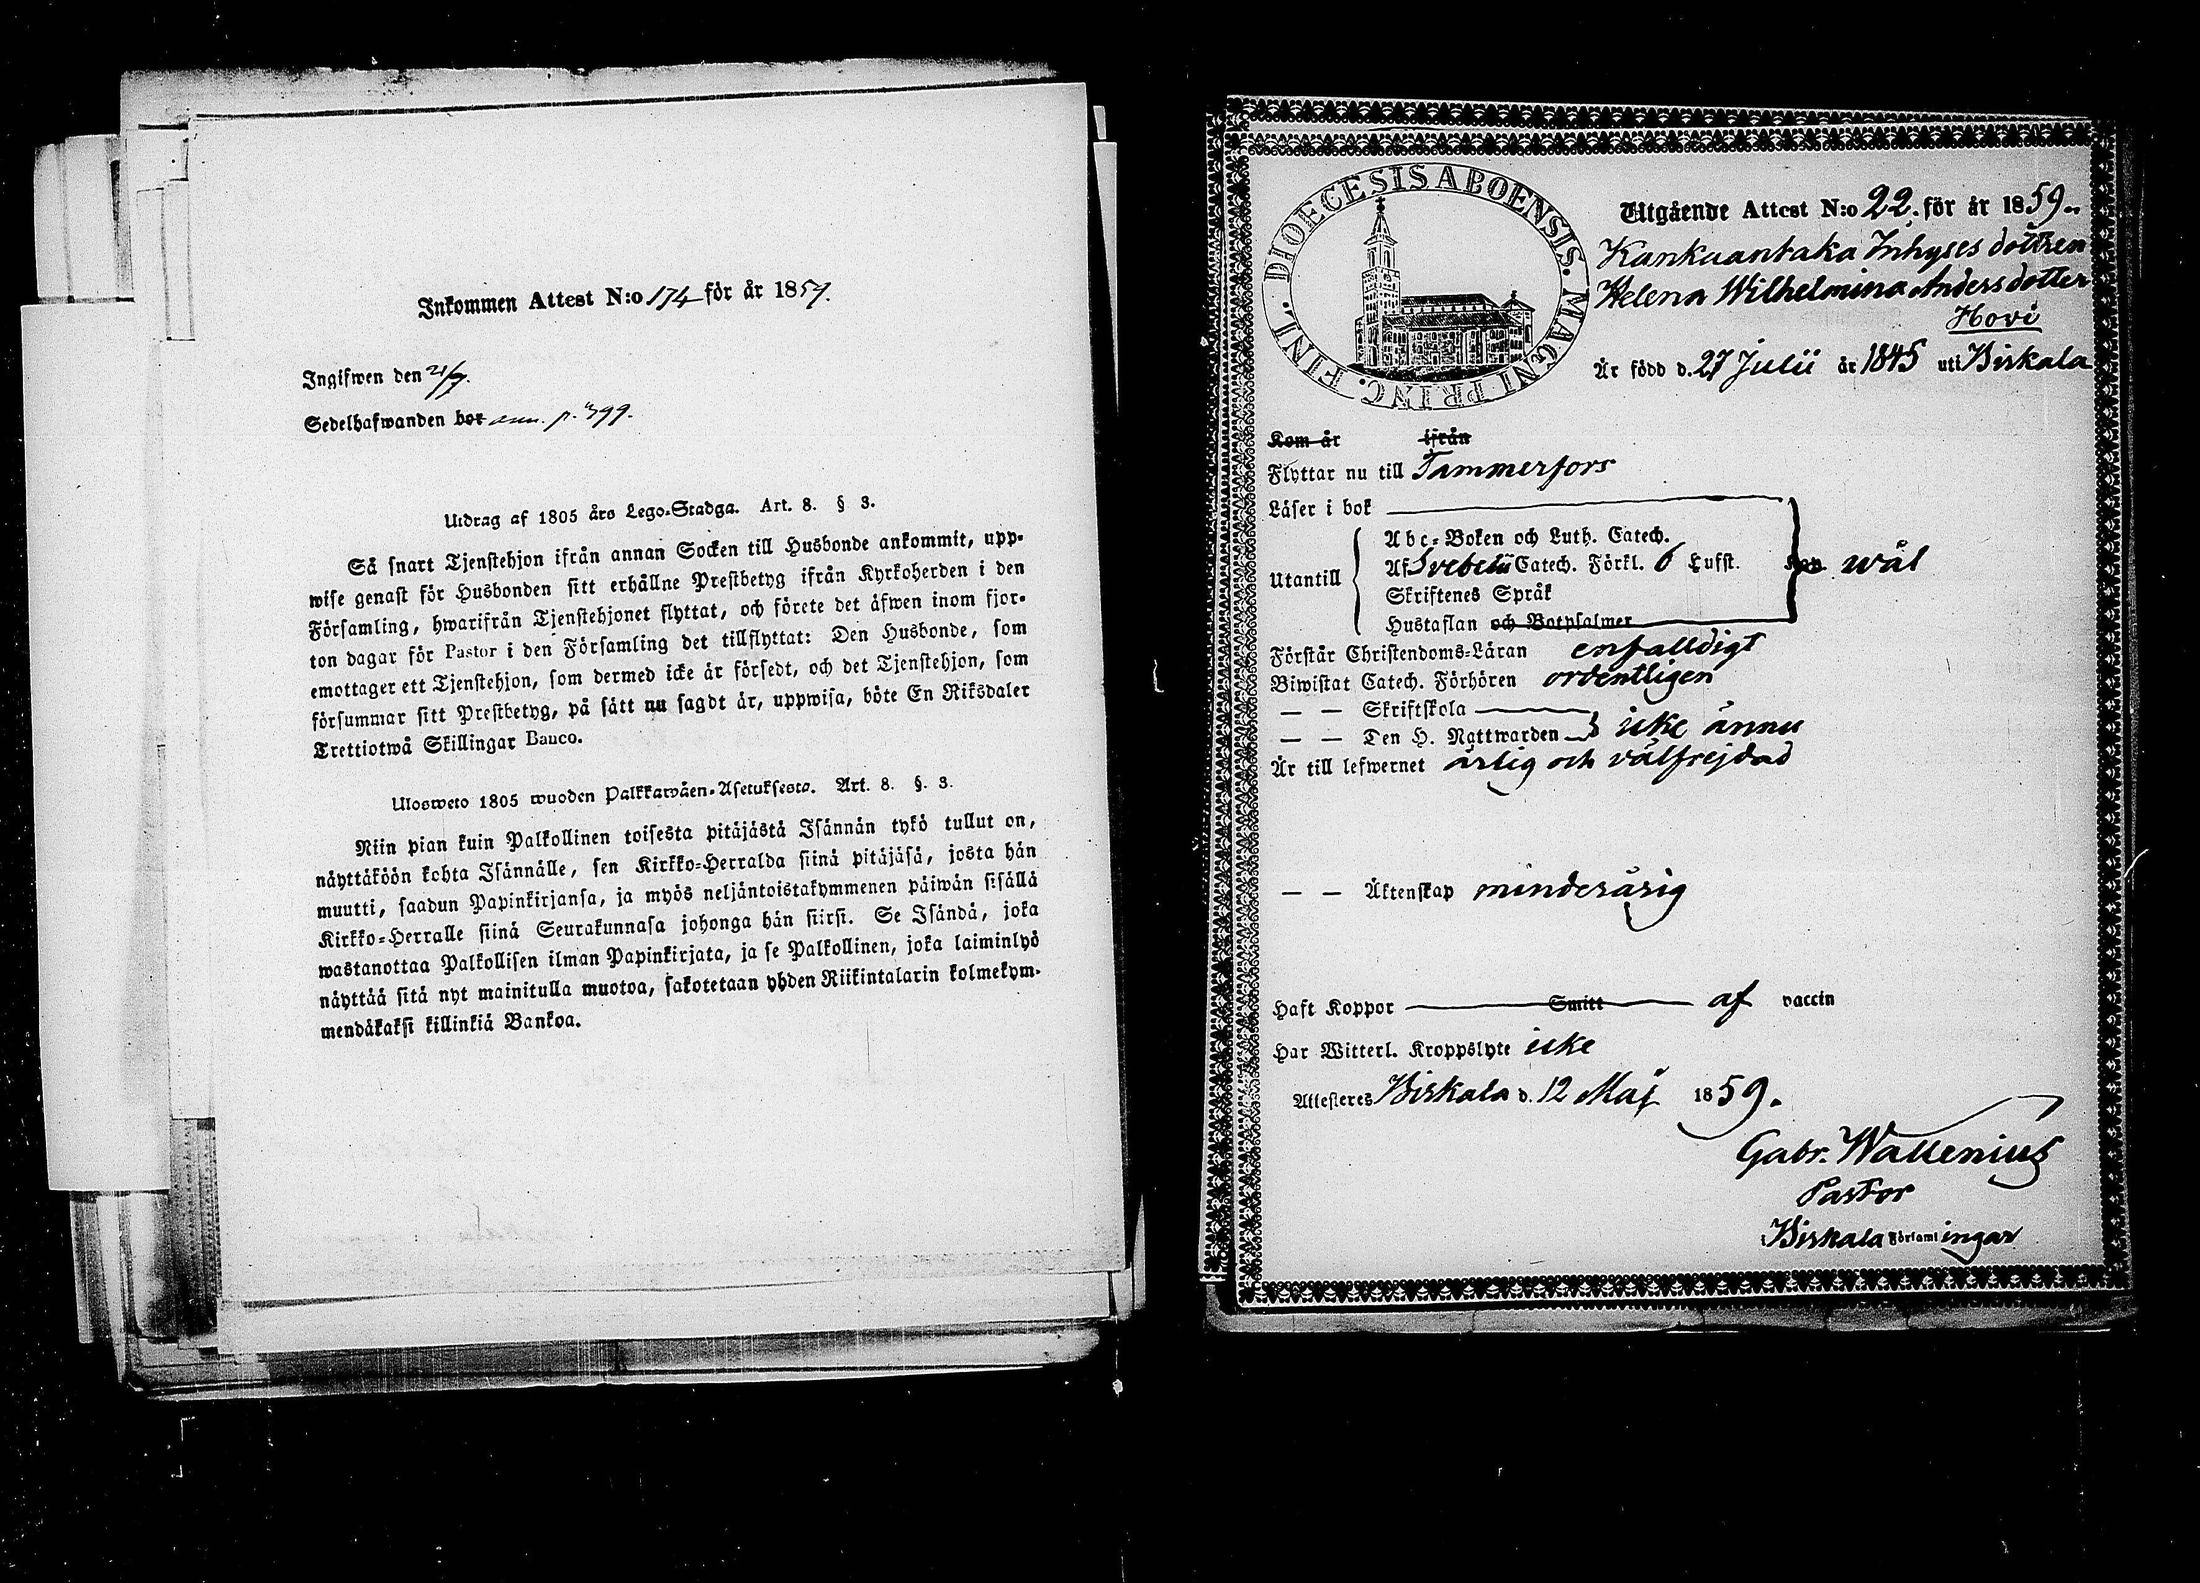 Inkommen Attest N:o 174 för år 1859.
Ingifwen den 21/7.
Sedelhafwanden bor ann. p. 399.
Utdrag af 1805 års Lego-Stadga. Art. 8. § 3.
Så snart Tjenstehjon ifrån annan Socken till Husbonde ankommit, upp-
wise genast för Husbonden sitt erhållne Prestbetyg ifrån Kyrkoherden i den
Församling, hwarifrån Tjenstehjonet flyttat, och förete det äfwen inom fjor-
ton dagar för Pastor i den Församling det tillflyttat: Den Husbonde, som
emottager ett Tjenstehjon, som dermed icke är försedt, och det Tjenstehjon, som
försummar sitt Prestbetyg, på sätt nu sagdt är, uppwisa, böte En Riksdaler
Trettiotwå Skillingar Banco.
Ulosweto 1805 wuoden Palkkawäen-Asetuksesta. Art. 8. §. 3.
Niin pian kuin Palkollinen toisesta pitäjästä Isännän tykö tullut on,
näyttäköön kohta Isännälle, sen Kirkko-Herralda siinä pitäjäsä, josta hän
muutti, saadun Papinkirjansa, ja myös neljäntoistakymmenen päiwän sisällä
Kirkko-Herralle siinä Seurakunnasa johonga hän siirsi. Se Isändä, joka
wastanottaa Palkollisen ilman Papinkirjata, ja se Palkollinen, joka laiminlyö
näyttää sitä nyt mainitulla muotoa, sakotetaan yhden Riikintalarin kolmekym-
mendäkaksi killinkiä Bankoa.
DIOECESIS ABOENSIS. MAGNI PRINC. FINL.
Utgående Attest N:o 22. för år 1859.
Kankaantaka Inhyses dottren
Helena Wilhelmina Andersdotter
Hovi
Är född d. 27 Julii år 1845 uti Birkala
Kom år ifrån
Flyttar nu till Tammerfors
Läser i bok
Utantill
Abc-Boken och Luth. Catech.
Af Svebelii Catech. Förkl. 6 Lufst. wäl
Skriftenes Språk
Hustaflan och Botpsalmer
Förstår Christendoms-Läran enfalldigt
Biwistat Catech. Förhören ordentligen
— — Skriftskola
— — Den H. Nattwarden icke ännu
Är till lefwernet ärlig och välfrejdad
— — Äktenskap minderårig
Haft Koppor Smitt af vaccin
Har Witterl. Kroppslyte icke
Attesteres Birkala d. 12 Maj 1859.
Gabr. Wallenius
Pastor
i Birkala Församlingar